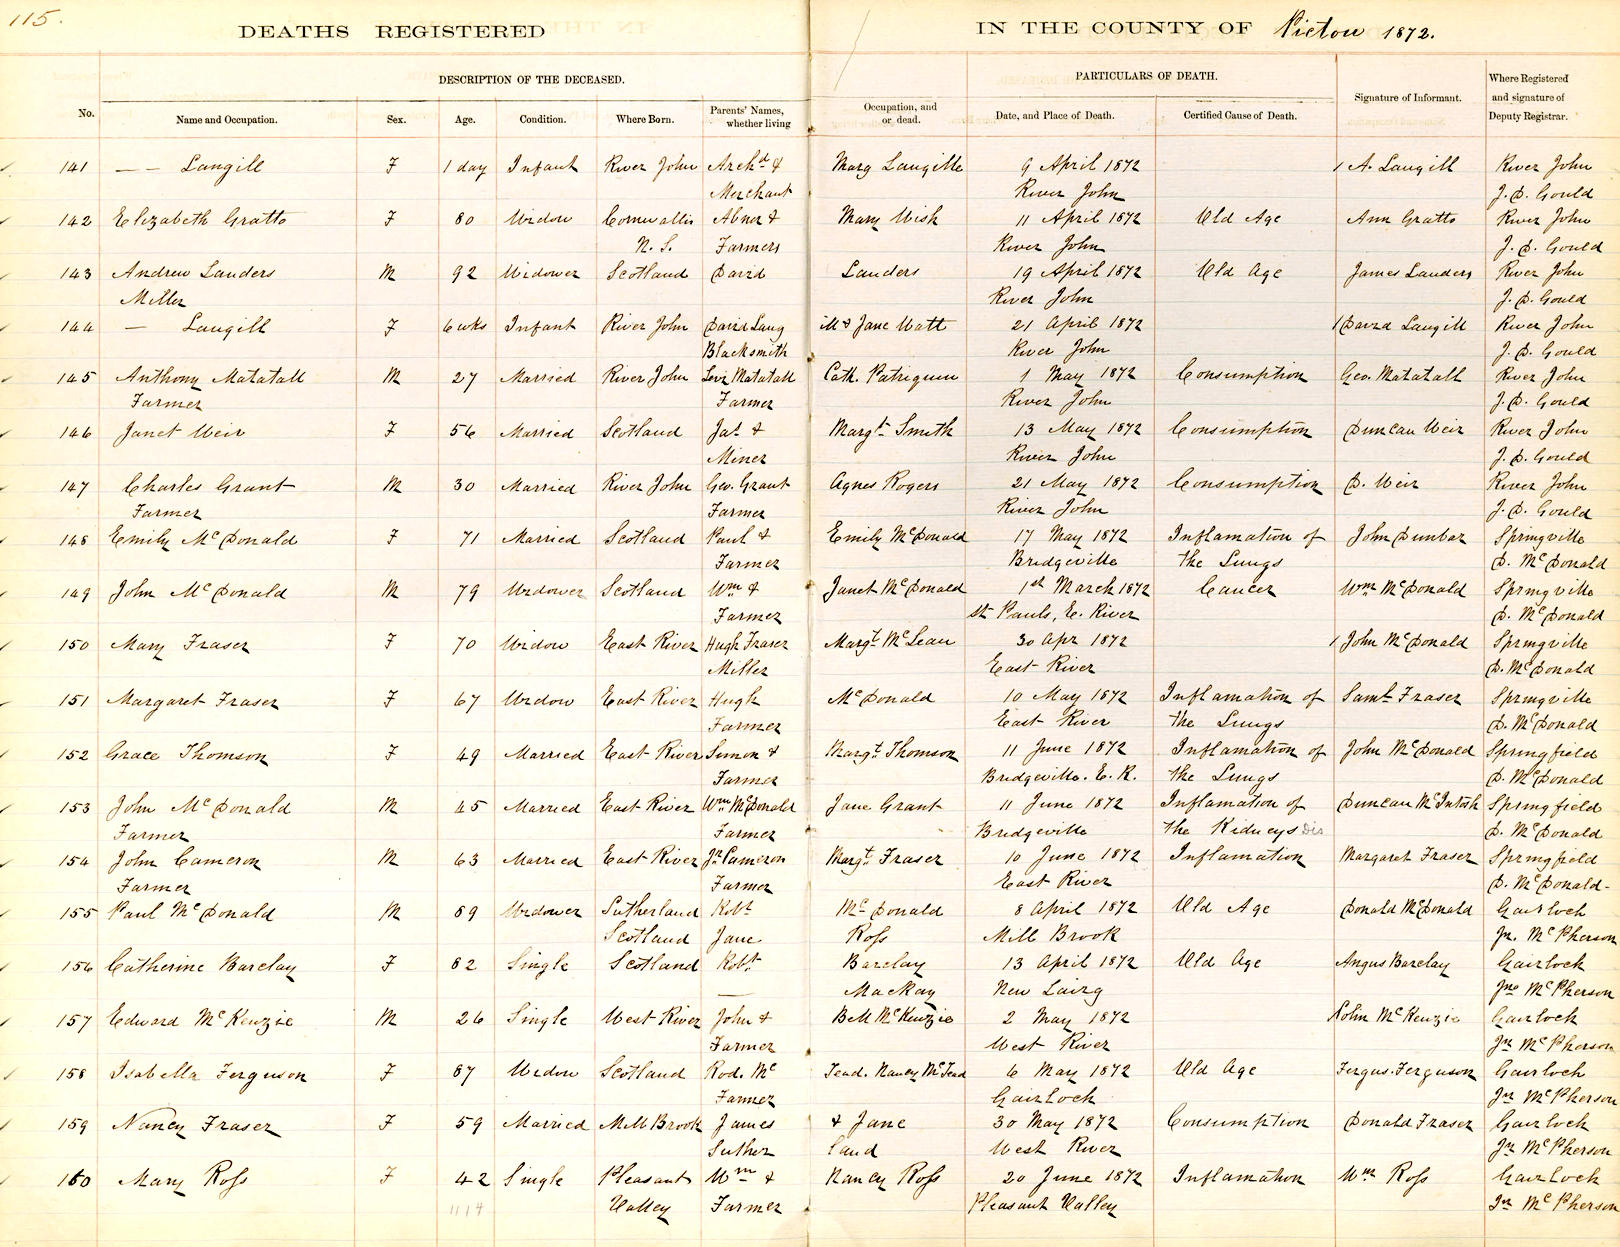 115.
DEATHS REGISTERED IN THE COUNTY OF Pictou 1872.
DESCRIPTION OF THE DECEASED. PARTICULARS OF DEATH.
No. Name and Occupation. Sex. Age. Condition. Where Born. Parents' Names, whether living Occupation, and or dead. Date, and Place of Death. Certified Cause of Death. Signature of Informant. Where Registered and signature of Deputy Registrar.
141 — — Langill F 1 day Infant River John Archd & Marg Langille 9 April 1872 A. Langill River John
Merchant River John J. D. Gould
142 Elizabeth Gratto F 80 Widow Cornwallis Abner & Mary Wish 11 April 1872 Old Age Ann Gratto River John
N. S. Farmers River John J. D. Gould
143 Andrew Landers M 92 Widower Scotland David Landers 19 April 1872 Old Age James Landers River John
Miller River John J. D. Gould
144 — Langill F 6 wks Infant River John David Lang ill & Jane Watt 21 April 1872 David Langill River John
Blacksmith River John J. D. Gould
145 Anthony Matatall M 27 Married River John Levi Matatall Cath. Patriquin 1 May 1872 Consumption Geo. Matatall River John
Farmer Farmer River John J. D. Gould
146 Janet Weir F 56 Married Scotland Jas. & Margt. Smith 13 May 1872 Consumption Duncan Weir River John
Miner River John J. D. Gould
147 Charles Grant M 30 Married River John Geo. Grant Agnes Rogers 21 May 1872 Consumption D. Weir River John
Farmer Farmer River John J. D. Gould
148 Emily McDonald F 71 Married Scotland Paul & Emily McDonald 17 May 1872 Inflamation of John Dunbar Springville
Farmer Bridgeville the Lungs D. McDonald
149 John McDonald M 79 Widower Scotland Wm & Janet McDonald 1st March 1872 Cancer Wm McDonald Springville
Farmer St Pauls, E. River D. McDonald
150 Mary Fraser F 70 Widow East River Hugh Fraser Margt. McLean 30 Apr 1872 John McDonald Springville
Miller East River D. McDonald
151 Margaret Fraser F 67 Widow East River Hugh McDonald 10 May 1872 Inflamation of Saml. Fraser Springville
Farmer East River the Lungs D. McDonald
152 Grace Thomson F 49 Married East River Simon & Margt. Thomson 11 June 1872 Inflamation of John McDonald Springfield
Farmer Bridgeville. E. R. the Lungs D. McDonald
153 John McDonald M 45 Married East River Wm McDonald Jane Grant 11 June 1872 Inflamation of Duncan McIntosh Springfield
Farmer Farmer Bridgeville the Kidneys Dis D. McDonald
154 John Cameron M 63 Married East River Jn Cameron Margt. Fraser 10 June 1872 Inflamation Margaret Fraser Springfield
Farmer Farmer East River D. McDonald-
155 Paul McDonald M 89 Widower Sutherland Robt McDonald 8 April 1872 Old Age Donald McDonald Gairloch
Scotland Jane Ross Mill Brook Jn. McPherson
156 Catherine Barclay F 82 Single Scotland Robt Barclay 13 April 1872 Old Age Angus Barclay Gairloch
— MacKay New Lairg Jno McPherson
157 Edward McKenzie M 26 Single West River John & Bell McKenzie 2 May 1872 John McKenzie Gairloch
Farmer West River Jn McPherson
158 Isabella Ferguson F 87 Widow Scotland Rod. Mc Lead. Nancy McLead 6 May 1872 Old Age Fergus. Ferguson Gairloch
Farmer Gairloch Jn McPherson
159 Nancy Fraser F 59 Married Mill Brook James & Jane 30 May 1872 Consumption Donald Fraser Gairloch
Suther land West River Jn McPherson
160 Mary Ross F 42 Single Pleasant Wm & Nancy Ross 20 June 1872 Inflamation Wm Ross Gairloch
1114 Valley Farmer Pleasant Valley Jn McPherson